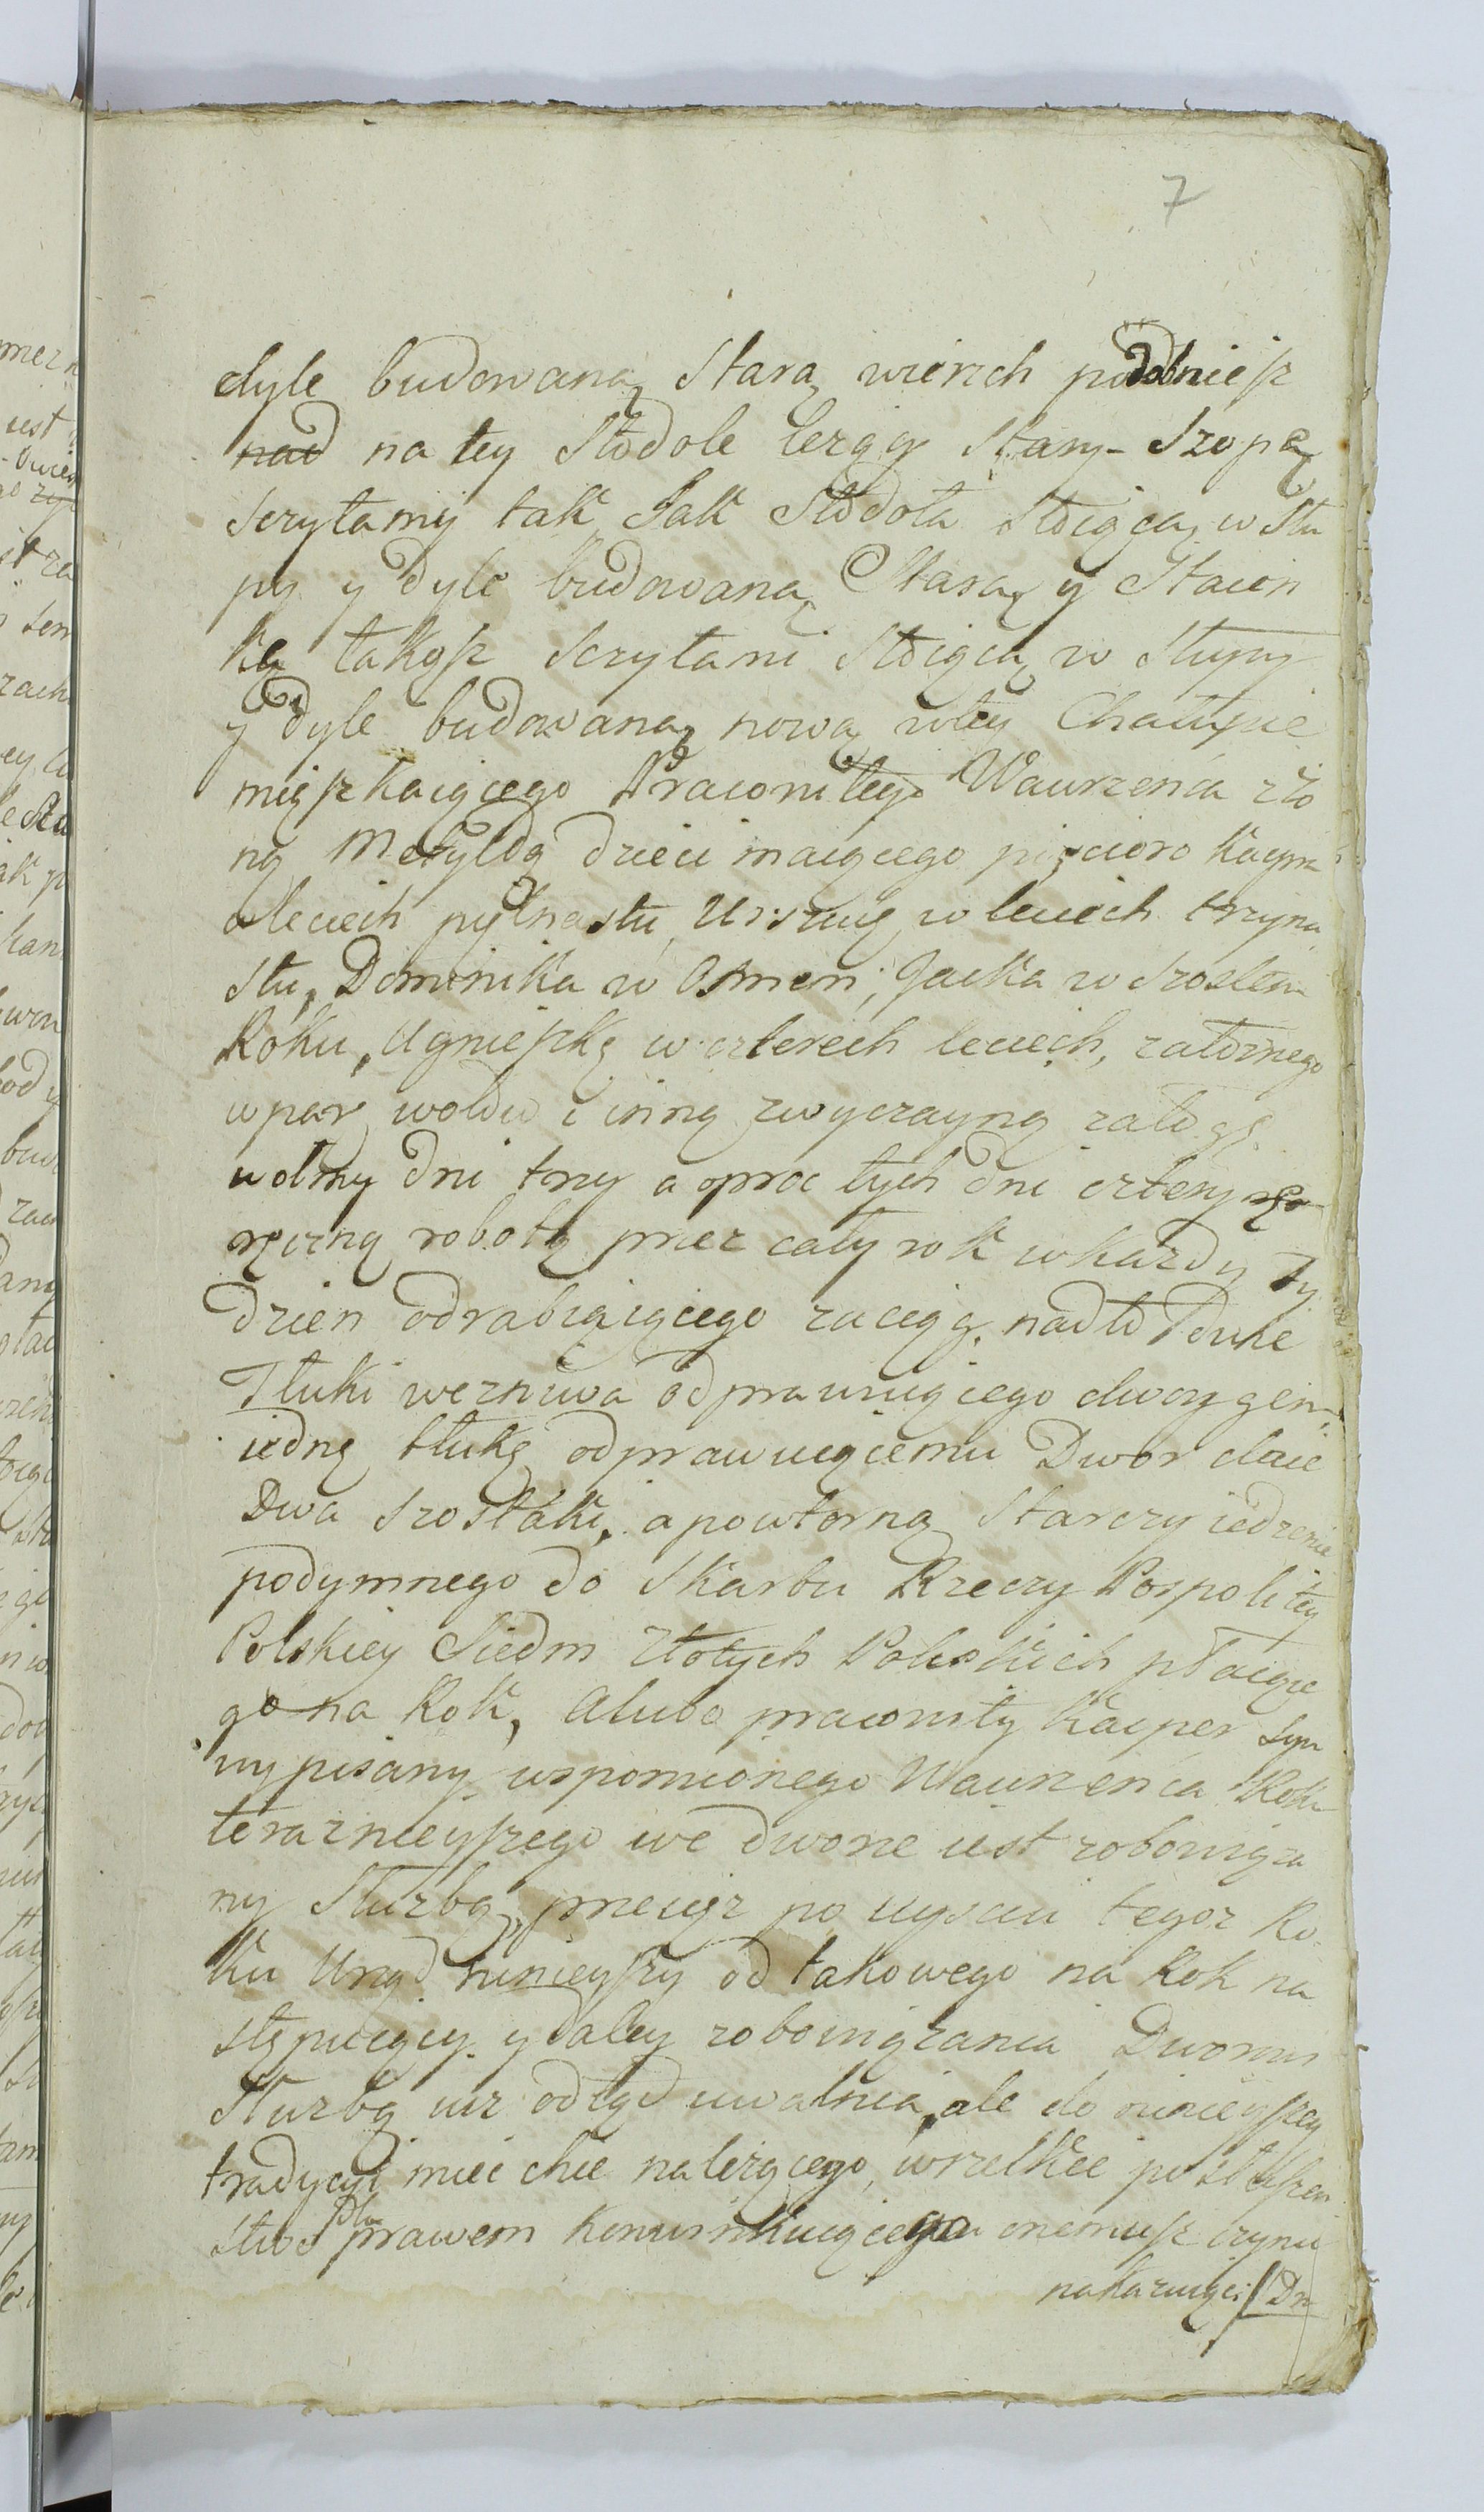 7
dyle budowaną Starą wierzch podobniesz
nad na tey Stodole leżący Stary - Szopą
Sczytamy tak Jak Stodoła Stoiącą w Słu
py y dyle budowaną Starą y Staien
ką takosz Sczytami Stoiącą w Słupy
y dyle budowaną nową w tey Chałupie
mięszkaiącego Pracowitego Wawrzenca z żo
ną Metyldą dzieci maiącego pięcioro Kacpra
w leciech piętnastu, Urszulę w leciech trzyna
stu, Dominika w osmem, Jacka w szostem
Roku, Agnieszkę w czterech leciech, załoznego
w parę wołow i inną zwyczayną załogę
wolmy dni trzy a oproc tych dni cztery ręo
ręczną robotą przez cały rok w kazdy Ty
dzien odrabiaiącego zaciąg, nadto dwie
Tłuki w czniwa odprawuiącego
iedną tłukę odprawuiącemu Dwor daie
Dwa szostaki, a powtorną Starczy iedzenie
podymnego do Skarbu Rzeczy Pospolitey
Polskiey Siedm Złotych Polskich płacące
go na Rok, Alubo pracowity Kacper syn
wypisany wspomionego Wawrzenca Roku
teraznieyszego we dworze iest zobowiąza
ny Służbą, przeciez po wysciu tegoz Ro
ku Urząd ninieyszy od takowego na Rok na
stępuiący y daley zobowiązania Dworowi
Służbą iuz odtąd uwalnia, ale do ninieyszey
tradycyi miec chce nalezącego, wszelkie posłuszen
stwo Plu prawem konwinkuiącego onemusz czynic
nakazuiąc / Dn